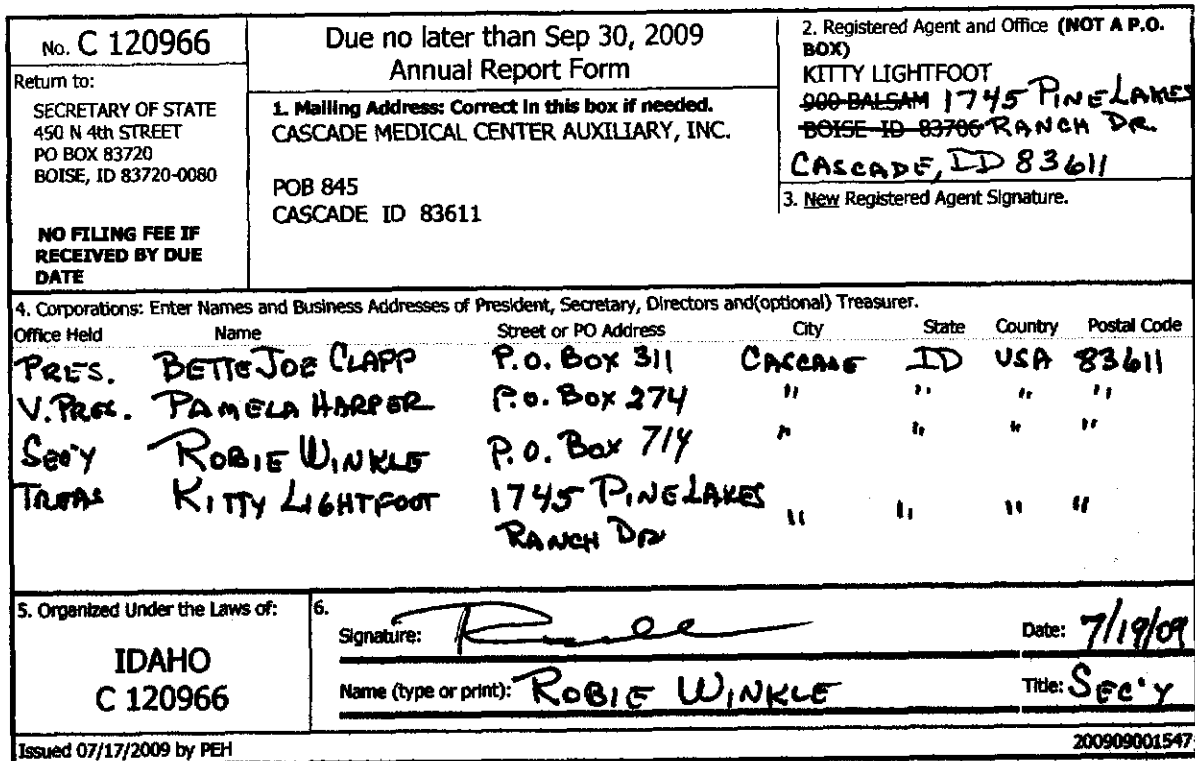 No. C 120966
Return to:
SECRETARY OF STATE
450 N 4th STREET
PO BOX 83720
BOISE, ID 83720-0080
NO FILING FEE IF
RECEIVED BY DUE
DATE
Due no later than Sep 30, 2009
Annual Report Form
1. Mailing Address: Correct in this box if needed.
CASCADE MEDICAL CENTER AUXILIARY, INC.
POB 845
CASCADE ID 83611
2. Registered Agent and Office (NOT A P.O.
BOX)
KITTY LIGHTFOOT
900 BALSAM 1745 PINE LAKES
BOISE ID 83706 RANCH DR.
CASCADE, ID 83611
3. New Registered Agent Signature.
4. Corporations: Enter Names and Business Addresses of President, Secretary, Directors and(optional) Treasurer.
Office Held Name Street or PO Address City State Country Postal Code
PRES. BETTE JOE CLAPP P.O. BOX 311 CASCADE ID USA 83611
V. PRES. PAMELA HARPER P.O. BOX 274 " " " "
SEC'Y ROBIE WINKLE P.O. BOX 714 " " " "
TREAS KITTY LIGHTFOOT 1745 PINE LAKES " " " "
RANCH DR
5. Organized Under the Laws of:
IDAHO
C 120966
6.
Signature: Date: 7/19/09
Name (type or print): ROBIE WINKLE Title: SEC'Y
Issued 07/17/2009 by PEH 200909001547